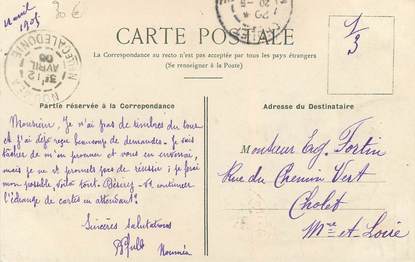 11 avril
1905
30 €
1/3
NOUVELLE CALEDONIE
3E 12
AVRIL
05
CARTE POSTALE
La Correspondance au recto n'est pas acceptée par tous les pays étrangers
(Se renseigner à la Poste)
Partie réservée à la Correspondance
Adresse du Destinataire
Monsieur, Je n'ai pas de timbres du tout
et j'ai déjà reçu beaucoup de demandes. Je vais
tâcher de m'en procurer et vous en enverrai,
mais je ne promets pas de réussir ; je ferai
mon possible, voilà tout. continuer
l'échange de cartes en attendant ?
Sincères salutations
Nouméa
Monsieur Eug. Fortin
Rue du Chemin Vert
Cholet
Mne et Loire